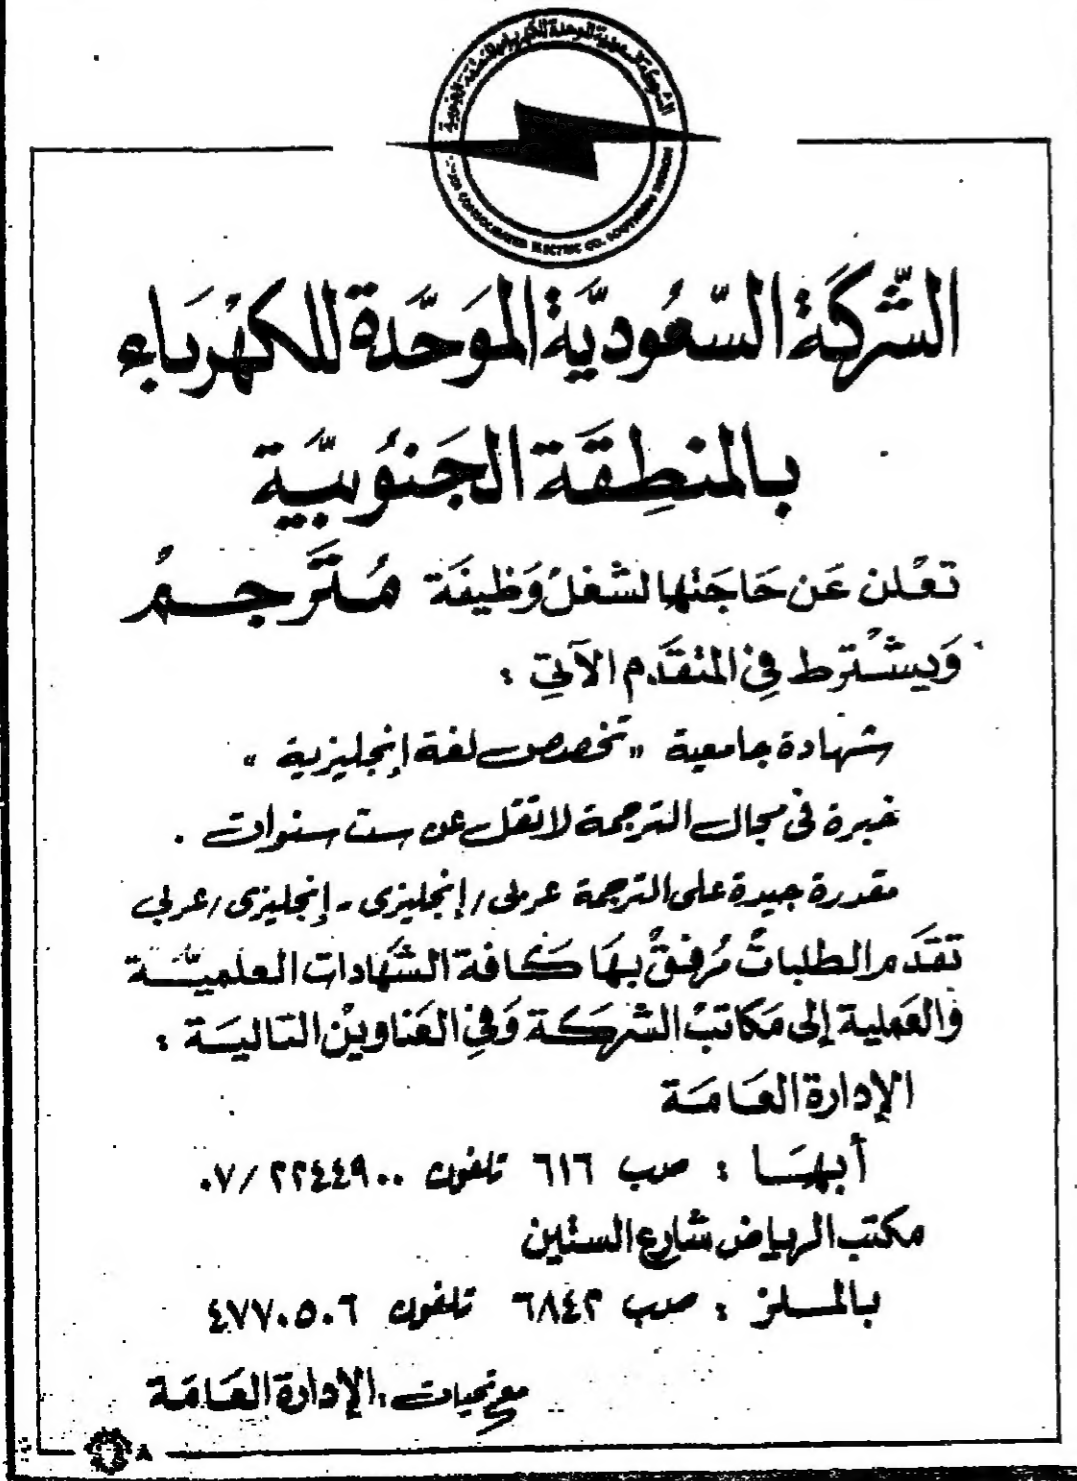 الشركة السعودية الموحدة للكهرباء بالمنطقة الجنوبية
CONSOLIDATED ELECTRIC CO. SOUTHERN REGION
الشَّركَة السّعُوديَّة الموَحَّدة للكهْربَاء
بالمنطِقَة الجَنوُبيَّة
تعْلن عَن حَاجَتها لشغل وَظيفَة مُتَرجمُ
وَيشْترط في المتقَدم الآتي :
شهادة جامعية "تخصص لغة إنجليزية "
خبرة فى مجال الترجمة لا تقل عن ست سنوات .
مقدرة جيدة على الترجمة عربى / إنجليزى - إنجليزى / عربى
تقدَم الطلباتُ مُرفقٌ بهَا كافة الشهَادات العلميَّة
وَالعَملية إلى مَكاتبْ الشركة وَفي العَناوين التاليَة :
الإدارة العَامَة
أبهَا : صب ٦١٦ تلفون ٠٧/٢٢٤٤٩٠٠
مكتب الرياض شارع الستين
بالملز : صب ٦٨٤٣ تلفون ٤٧٧٠٥٠٦
مع تحيات ، الإدارة العَامَة
٨